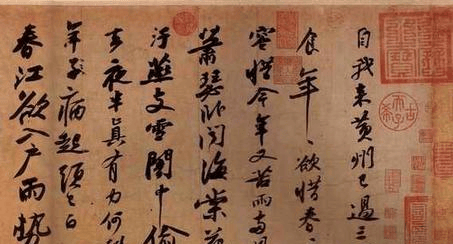 自我來黃州已過三
食年〻欲惜春
容惜今年又苦雨兩月
蕭瑟臥聞海棠花
汙燕支雪闇中偷
去夜半真有力何殊
年子病起須已白
春江欲入戶雨勢
古希天子